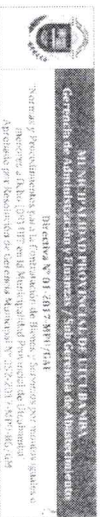 MUNICIPALIDAD PROVINCIAL DE UTCUBAMBA
Gerencia de Administración y Finanzas / Sub Gerencia de Abastecimiento
Directiva N° 01-2017-MPU/GAF
"Normas y Procedimientos para la Contratación de Bienes y Servicios por montos iguales o
menores a Ocho (08) UIT en la Municipalidad Provincial de Utcubamba
Aprobado por Resolución de Gerencia Municipal N°